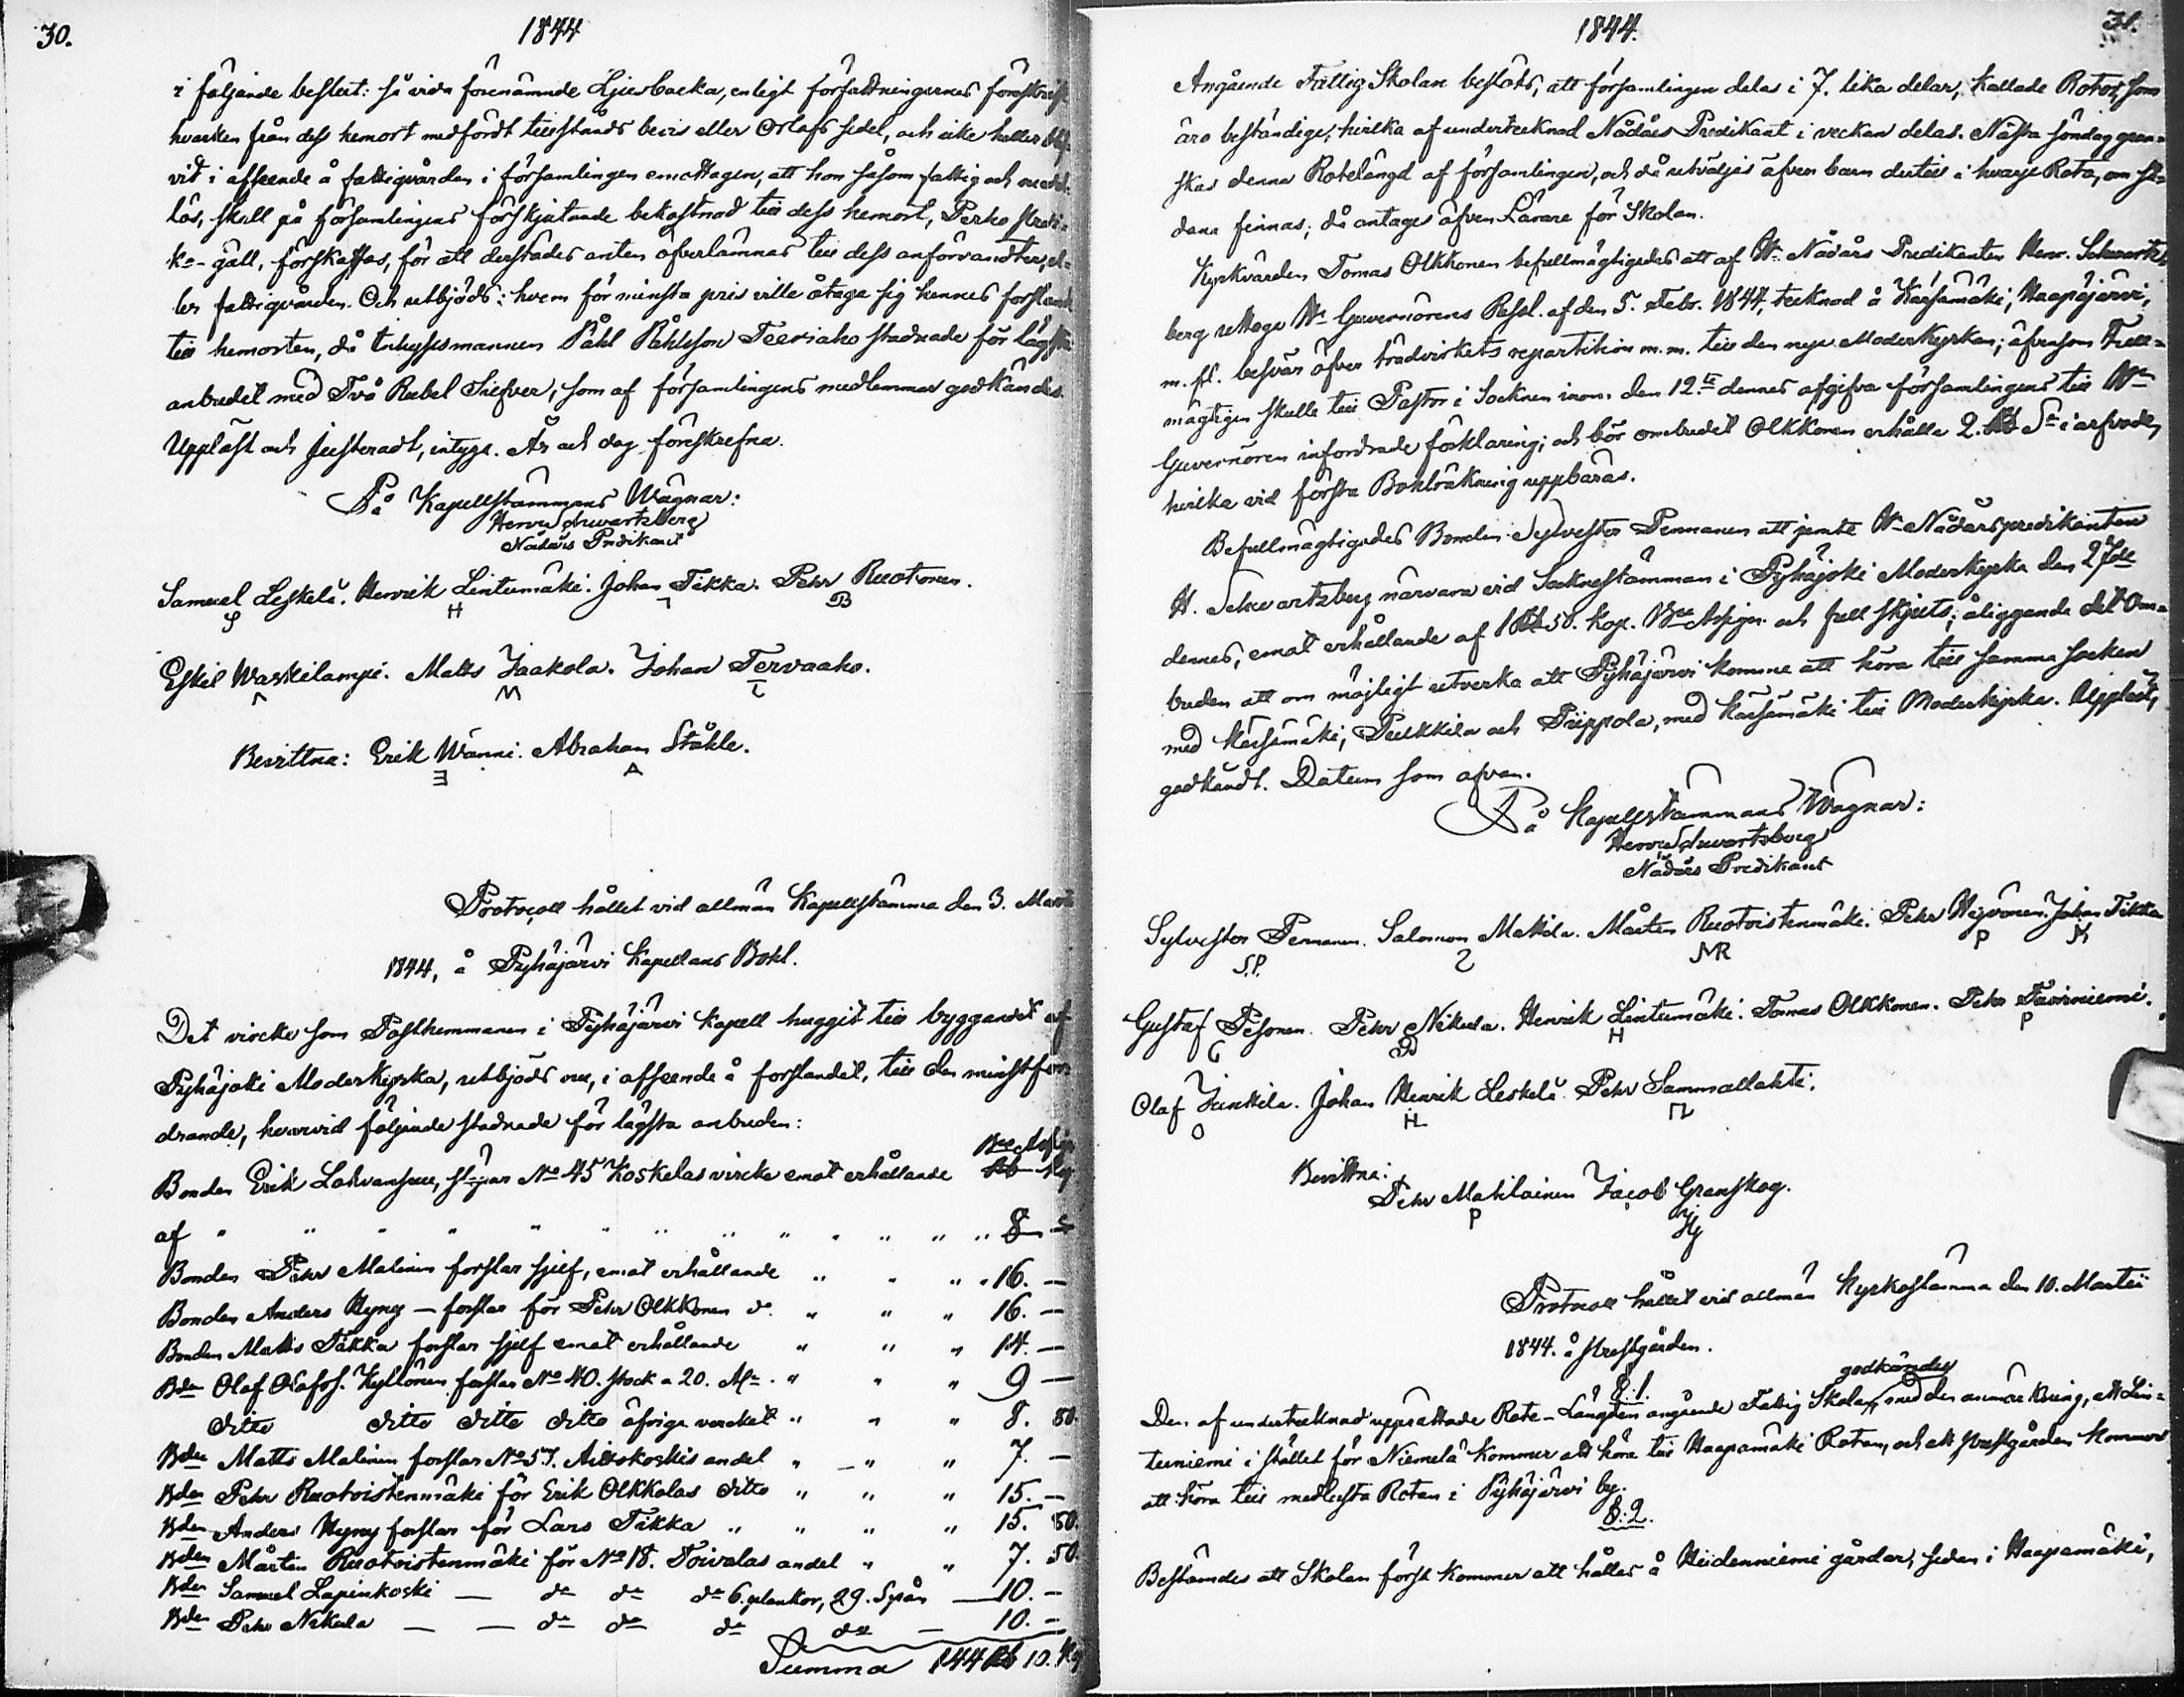 30.
1844
i följande beslut: så vida förenämnde Ljusbacka, enligt författningarnes föreskrift
hvarken från dess hemort medfördt tillstånds bevis eller Orlofs sedel, och icke heller blif-
vit i afseende å fattigvården i församlingen emottagen, att hon såsom fattig och medel-
lös, skall på församlingens förskjutande bekostnad till dess hemort, Perho
gäll, förskaffas, för att derstädes anten öfverlämnas till dess anförvandter, el-
ler fattigvården. Och utbjöds: hvem för minsta pris ville åtaga sig hennes forslande
till hemorten, då Inhyssesmannen Påhl Påhlsson Teeriaho stadnade för lägsta
anbudet med Två Rubel Silfver; som af församlingens medlemmar godkändes.
Uppläst och justeradt, intyga. År och dag föreskrefne.
På Kapellstämmans Wägnar:
Henric Schwartzberg
Nådårs Predikant
Samuel Leskelä. Henrik Lintumäki. Johan Tikka. Pehr Ruotonen.
Eskil Waskilampi. Matts Jaakola. Johan Tervaaho.
Bevittna: Erik Wänni. Abraham Ståhle.
Protocoll hållet vid allmän Kapellstämma den 3. Martii
1844, å Pyhäjärvi Kapellans Bohl.
Det vircke som Posthemmanen i Pyhäjärvi Kapell huggit till byggandet af
Pyhäjoki Moderkyrka, utbjöds nu, i afseende å forslandet, till den minstfor-
drande, hvarvid följande stadnade för lägsta anbuden:
Bco Assign
Bonden Erik Lohvansuu, No 45 Koskelas vircke emot erhållande Rb Kop
af " " " " " " " " " " " " " 8 -
Bonden Pehr Malinen forslar sjelf, emot erhållande " " " " 16. —
Bonden Anders Hyny — forslar för Pehr Olkkonen do " " " 16. —
Bonden Matts Tikka forslar sjelf emot erhållande " " " 14. —
Bdn Olaf Olofss. Kyllönen forslar No 40. stock a 20. Al. " " " 9 —
ditto ditto ditto ditto öfriga vercket " " " 8. 80.
Bden Matts Malinen forslar No 57. Aittokoskis andel " — " " 7. —
Bden Pehr Ruotoistenmäki för Erik Olkkolas ditto " " " 15. —
Bden Anders Hyny forslar för Lars Tikka " " " " 15. 80.
Bden Mårten Ruotoistenmäki för No 18. Toivolas andel " " 7. 50.
Bden Samuel Lapinkoski — do do do 6. plankor, 29. Spån — 10. -
Bden Pehr Nikula — — do do do do — 10. -
Summa 144 Rb 10. Kop
1844.
31.
Angående Fattig Skolan beslöts, att församlingen delas i 7. lika delar, kallade Rotor, som
äro beständige; hvilka af undertecknad Nådårs Predikant i veckan delas. Nästa söndag gran-
skas denna Rotelängd af församlingen, och då utväljes äfven barn dertill i hvarje Rota, om så-
dana finnas; då antages äfven Lärare för Skolan.
Kyrkvärden Tomas Olkkonen befullmägtigades att af Hr Nådårs Predikanten Henr. Schwartz-
berg uttaga Hr Guvernörens Resol. af den 5. Febr. 1844, tecknad å Kärsämäki, Haapajärvi,
m. fl. besvär öfver trädvirkets repartition m.m. till den nya Moderkyrkan; äfvensom Full-
mägtigen skulle till Pastor i Socknen inom den 12te dennes afgifva församlingens till Hr
Guvernören infordrade förklaring; och bör ombudet Olkkonen erhålla 2. Rb Sr i arfvode,
hvilka vid första Bohlräkning uppbäras.
Befullmägtigades Bonden Sylvester Pennanen att jemte Hr Nådårspredikanten
H. Schwartzberg närvara vid Socknestämman i Pyhäjoki Moderkyrka den 27de
dennes, emot erhållande af 1 Rb 50. Kop. Bco Assign. och full skjuts; åliggande det Om-
buden att om möjligt utverka att Pyhäjärvi komme att höra till samma Socken
med Kärsämäki, Pulkkila och Piippola, med Kärsämäki till Moderkyrka. Uppläst,
godkändt. Datum som ofvan.
På Kapellstämmans Wägnar:
Henric Schwartzberg
Nådårs Predikant
Sylvester Pennanen. Salomon Mattila. Mårten Ruotoistenmäki. Pehr Hyvönen. Johan Tikka
S.P. MR P
Gustaf Pesonen. Pehr Nikula. Henrik Lintumäki. Tomas Olkkonen. Pehr Tuorniemi.
G H P
Olaf Junkila. Johan Henrik Leskelä. Pehr Sammallahti.
O H
Bevittna:
Pehr Matilainen Jacob Granskog.
P
Protocoll hållet vid allmän Kyrkostämma den 10. Martii
1844. å Prestgården.
§. 1.
godkändes
Den af undertecknad upprättade Rote-Längden angående Fattig Skolan, med den anmärkning, att Lin-
tuniemi i stället för Niemelä kommer att höra till Haapamäki Rotan, och att prestgården kommer
att höra till medlersta Rotan i Pyhäjärvi by.
§. 2.
Bestämdes att Skolan först kommer att hållas å Hiidenniemi gårdar, sedan i Haapamäki,